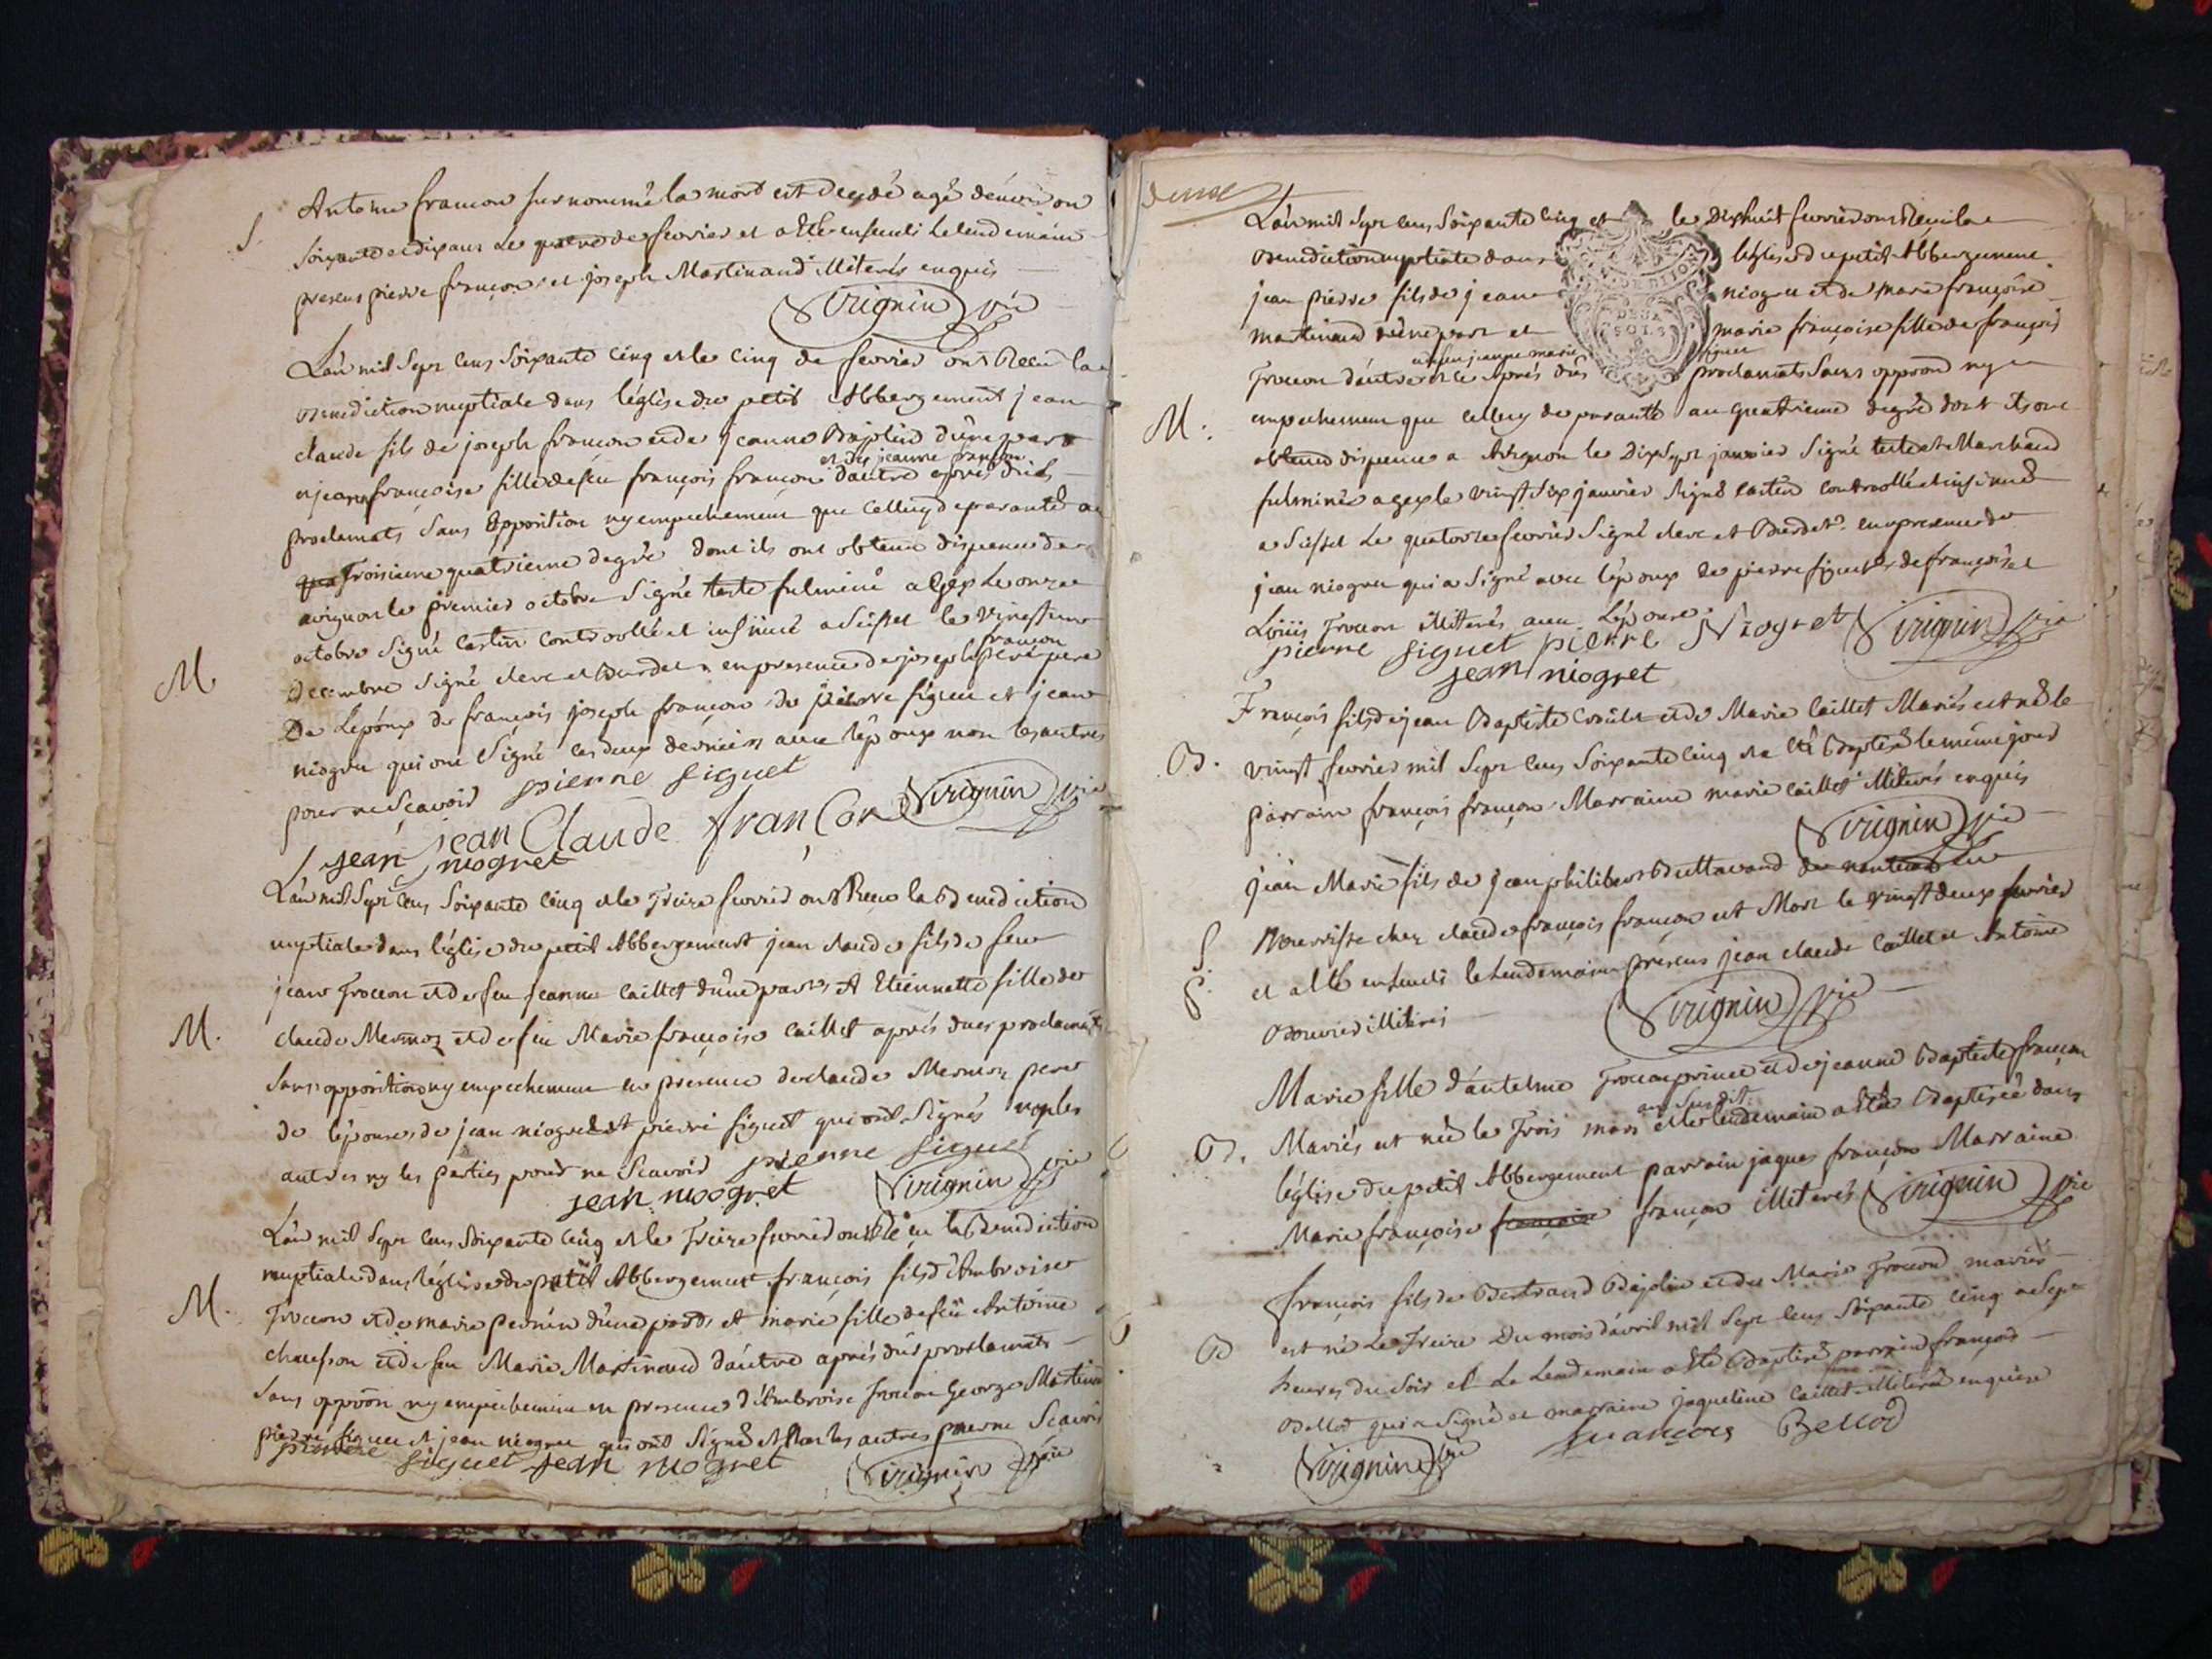 S.
Antoine françon surnommé la mort est decedé agé denviron
soixante et dix ans le quatre de fevrier et a Eté enseveli le lendemain
presens pierre françon et joseph Martinand illiterés enquis
Virignin vic
M.
L'an mil sept cens soixante cinq et le cinq de fevrier ont Receu la
Benediction nuptiale dans l'église du petit Abbergement jean
claude fils de joseph françon et de jeanne Bajolin d'une part
et jeanne françoise fille de feu françois françon et de jeanne françon d'autre après dües
proclamats sans opposition ny empechement que celluy de parenté au
troisieme quatrieme degré dont ils ont obtenu dispense
avignon le premier octobre signé teste fulminé a Gex le onze
octobre signé castin controollé et insinué a Seissel le vingt un
decembre signé clerc et Burdet en presence de joseph françon pere
De L'epoux de françois joseph françon de pierre siguet et jean
niogret qui ont signé les deux derniers avec l'epoux non les autres
pour ne scavoir pierre siguet
jean Claude françon Virignin vic
jean niogret
M.
L'an mil sept cens soixante cinq et le treize fevrier ont Receu la Benediction
nuptiale dans l'église du petit Abbergement jean claude fils de feu
jean trocon et de feu jeanne caillet d'une part et Etiennette fille de
claude Mermoz et de feu Marie françoise caillet après dues proclamats
sans opposition ny empechement en presence de claude Mermoz pere
de l'epouse, de jean niogret et pierre siguet qui ont signés non les
autres ny les parties pour ne scavoir pierre siguet
jean niogret Virignin vic
M.
L'an mil sept cens soixante cinq et le treize fevrier ont Receu la Benediction
nuptiale dans l'église du petit Abbergement françois fils d'Ambroise
trocon et de marie pernin d'une part et marie fille de feu Antoine
chaesson et de feu Marie Martinand d'autre après dus proclamats
sans oppoon ny empechement en presence d'Ambroise trocon George Martinand
pierre siguet et jean niogret qui ont signé et non les autres pour ne scavoir
pierre siguet jean niogret Virignin vic
deuxe
M.
L'an mil sept cens soixante cinq et le dixhuit fevrier ont Receu la
Benediction nuptiale dans l'église du petit Abbergement
DEUX SOLS
jean pierre fils de jean niogret et de marie françoise
martinand d'une part et marie françoise fille de françois
trocon et de feu jeanne marie siguet d'autre après dus proclamats sans oppoon ny
empechement que celluy de parenté au quatrieme degré dont ils ont
obtenu dispense a Avignon le dix sept janvier signé teste et Marchand
fulminée a gex le vingt six janvier signé castin controollé et insinué
a Seissel le quatorze fevrier signé clerc et Burdet en presence de
jean niogret qui a signé avec l'epoux de pierre siguet de françois et
Louis trocon illiterés avec L'épouse
pierre siguet pierre Niogret Virignin vic
jean niogret
B.
François fils de jean Baptiste et de Marie caillet Mariés est né le
vingt fevrier mil sept cens soixante cinq et a Eté Baptisé le même jour
parrain françois françon Marraine marie caillet illiterés enquis
Virignin vic
S.
jean Marie fils de jean philibert Buttavand de nantua
Nourrisse chez claude françois françon est Mort le vingt deux fevrier
et a Eté enseveli le lendemain presens jean claude caillet et Antoine
Bouvier illiterés
Virignin vic
B.
Marie fille d'antelme trocon prince et de jeanne Baptiste françon
Mariés est née le trois mars an susdit et le lendemain a Eté Baptisée dans
l'église du petit Abbergement parrain jaques françon Marraine
Marie françoise françon illiterés Virignin vic
B
françois fils de Bertrand Bajolin et de Marie trocon mariés
est né Le treize Du mois d'avril mil sept cens soixante cinq a sept
heures du soir et Le Lendemain a Eté Baptisé parrain françois
Bellod qui a signé et marraine jaqueline caillet illiterée enquise
Virignin vic françois Bellod